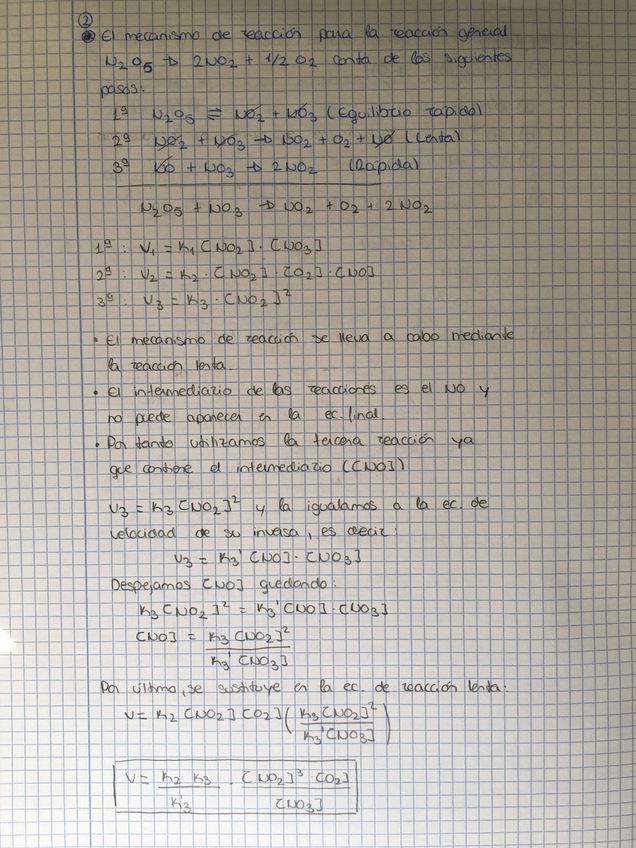 ②
El mecanismo de reacción para la reacción general
N₂O₅ → 2NO₂ + 1/2 O₂ conta de los siguientes
pasos:
1º N₂O₅ ⇌ NO₂ + NO₃ (Equilibrio rápido)
2º NO₂ + NO₃ → NO₂ + O₂ + NO (Lenta)
3º NO + NO₃ → 2NO₂ (Rápida)
N₂O₅ + NO₃ → NO₂ + O₂ + 2NO₂
1º: V₁ = K₁ [NO₂] · [NO₃]
2º: V₂ = K₂ · [NO₂] · [O₂] · [NO]
3º: V₃ = K₃ · [NO₂]²
• El mecanismo de reacción se lleva a cabo mediante
la reacción lenta.
• El intermediario de las reacciones es el NO y
no puede aparecer en la ec. final.
• Por tanto utilizamos la tercera reacción ya
que contiene el intermediario ([NO])
V₃ = K₃ [NO₂]² y la igualamos a la ec. de
velocidad de su inversa, es decir:
V₃ = K₃' [NO] · [NO₃]
Despejamos [NO] quedando:
K₃ [NO₂]² = K₃' [NO] · [NO₃]
[NO] = K₃ [NO₂]² / K₃' [NO₃]
Por último, se sustituye en la ec. de reacción lenta:
V = K₂ [NO₂] [O₂] (K₃ [NO₂]² / K₃' [NO₃])
V = K₂ K₃ / K₃' · [NO₂]³ · [O₂] / [NO₃]